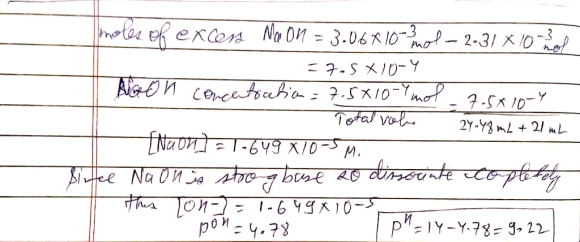 moles of excess NaOH = 3.06 x 10⁻³ mol - 2.31 x 10⁻³ mol
= 7.5 x 10⁻⁴
NaOH concentration = 7.5 x 10⁻⁴ mol / Total vol. = 7.5 x 10⁻⁴ / 24.48 mL + 21 mL
[NaOH] = 1.649 x 10⁻⁵ M.
Since NaOH is strong base so dissociate completely
thus [OH-] = 1.649 x 10⁻⁵
pOH = 4.78
pH = 14 - 4.78 = 9.22